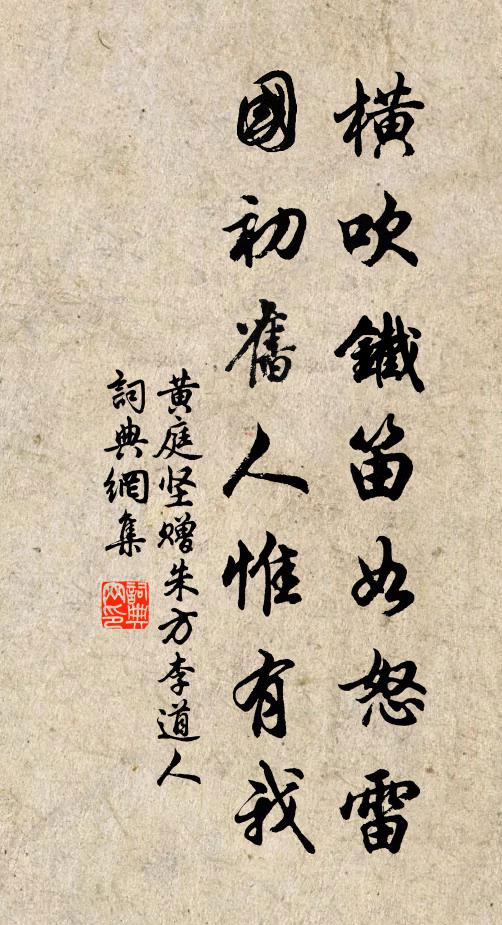 橫吹鐵笛如怒雷
國初舊人惟有我
黄庭坚贈朱方李道人
詞典網集
詞典网印